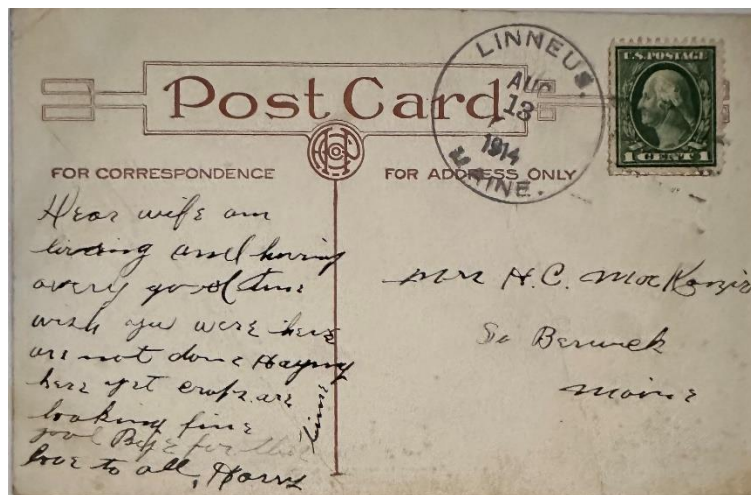 LINNEUS.
AUG
13
1914
MAINE.
U.S. POSTAGE
1 CENT 1
Post Card
FOR CORRESPONDENCE
FOR ADDRESS ONLY
Dear wife am
and having
a very good time
wish you were here
are not done Haying
here yet crops are
looking fine
good Bye for this
time
love to all, Harry
Mrs H.C. MacKenzie
So Berwick
Maine